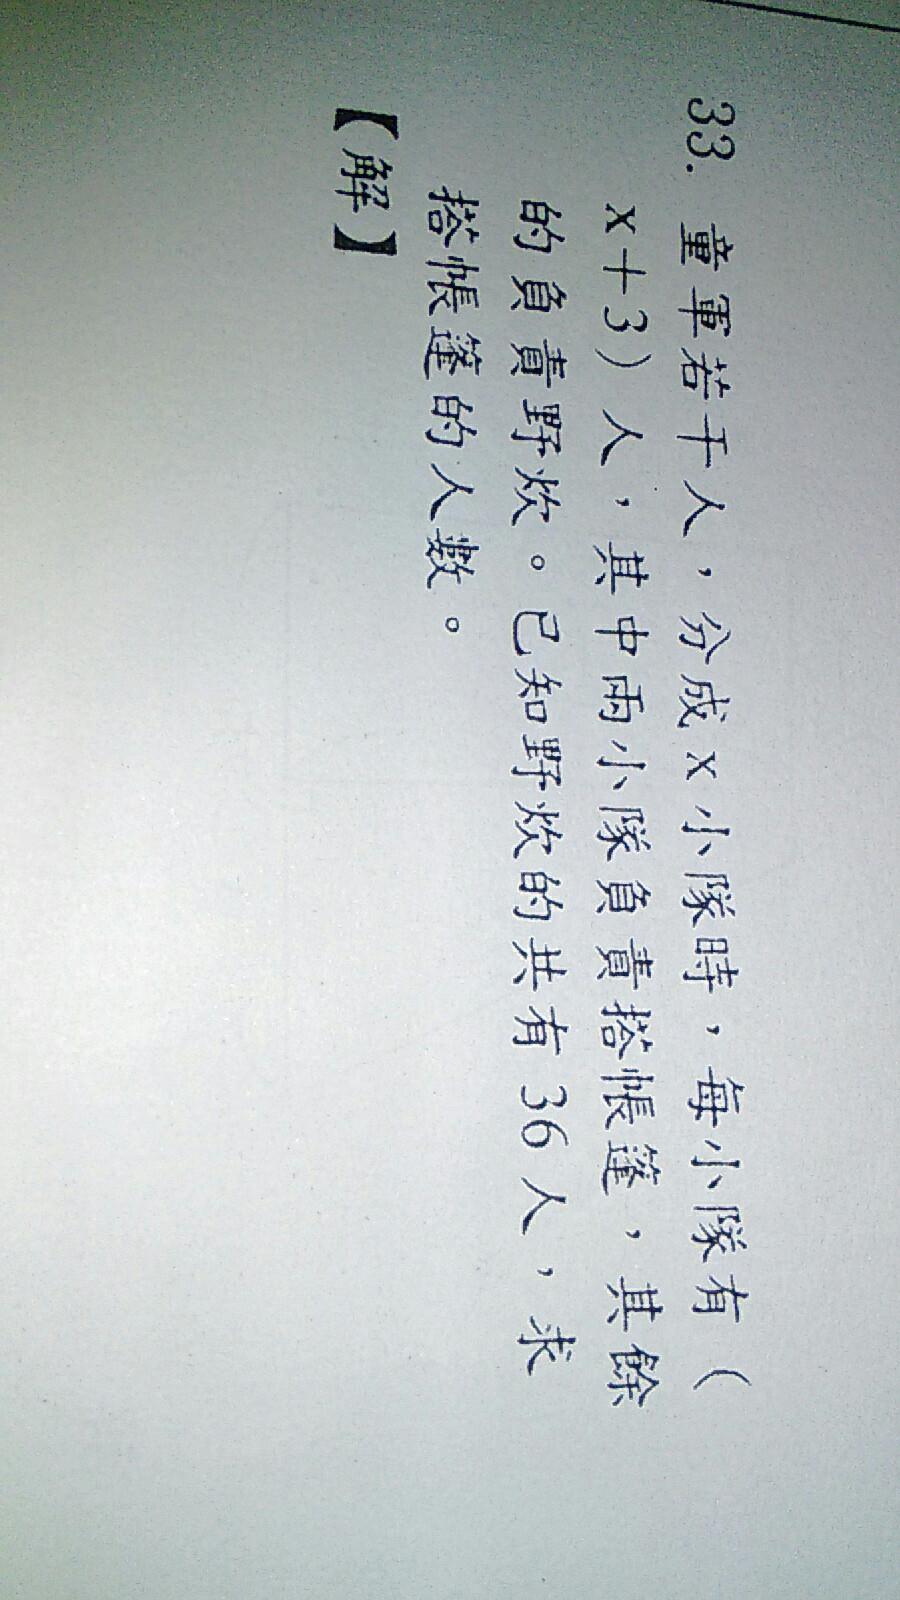 33. 童軍若干人，分成x小隊時，每小隊有（
x＋3）人，其中兩小隊負責搭帳篷，其餘
的負責野炊。已知野炊的共有36人，求
搭帳篷的人數。
【解】